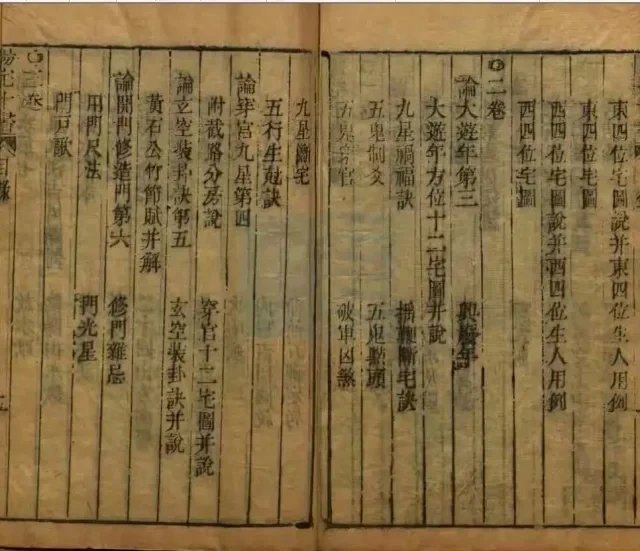 東四位宅圖說并東四位生人用例
東四位宅圖
西四位宅圖說并西四位生人用例
西四位宅圖
二卷
論大遊年第三 興廢年
大遊年方位十二宅圖并說
九星禍福訣 搖鞭斷宅訣
五鬼制 五鬼
五鬼穿宮 破軍凶煞
九星斷宅
五行生尅訣
論穿宮九星第四
附截路分房說 穿宮十二宅圖并說
論玄空裝卦訣第五 玄空裝卦訣并說
黃石公竹節賦并解
論開門修造門第六 修門雜忌
用門尺法 門光星
門戶歌
三卷
陽宅十書 目錄